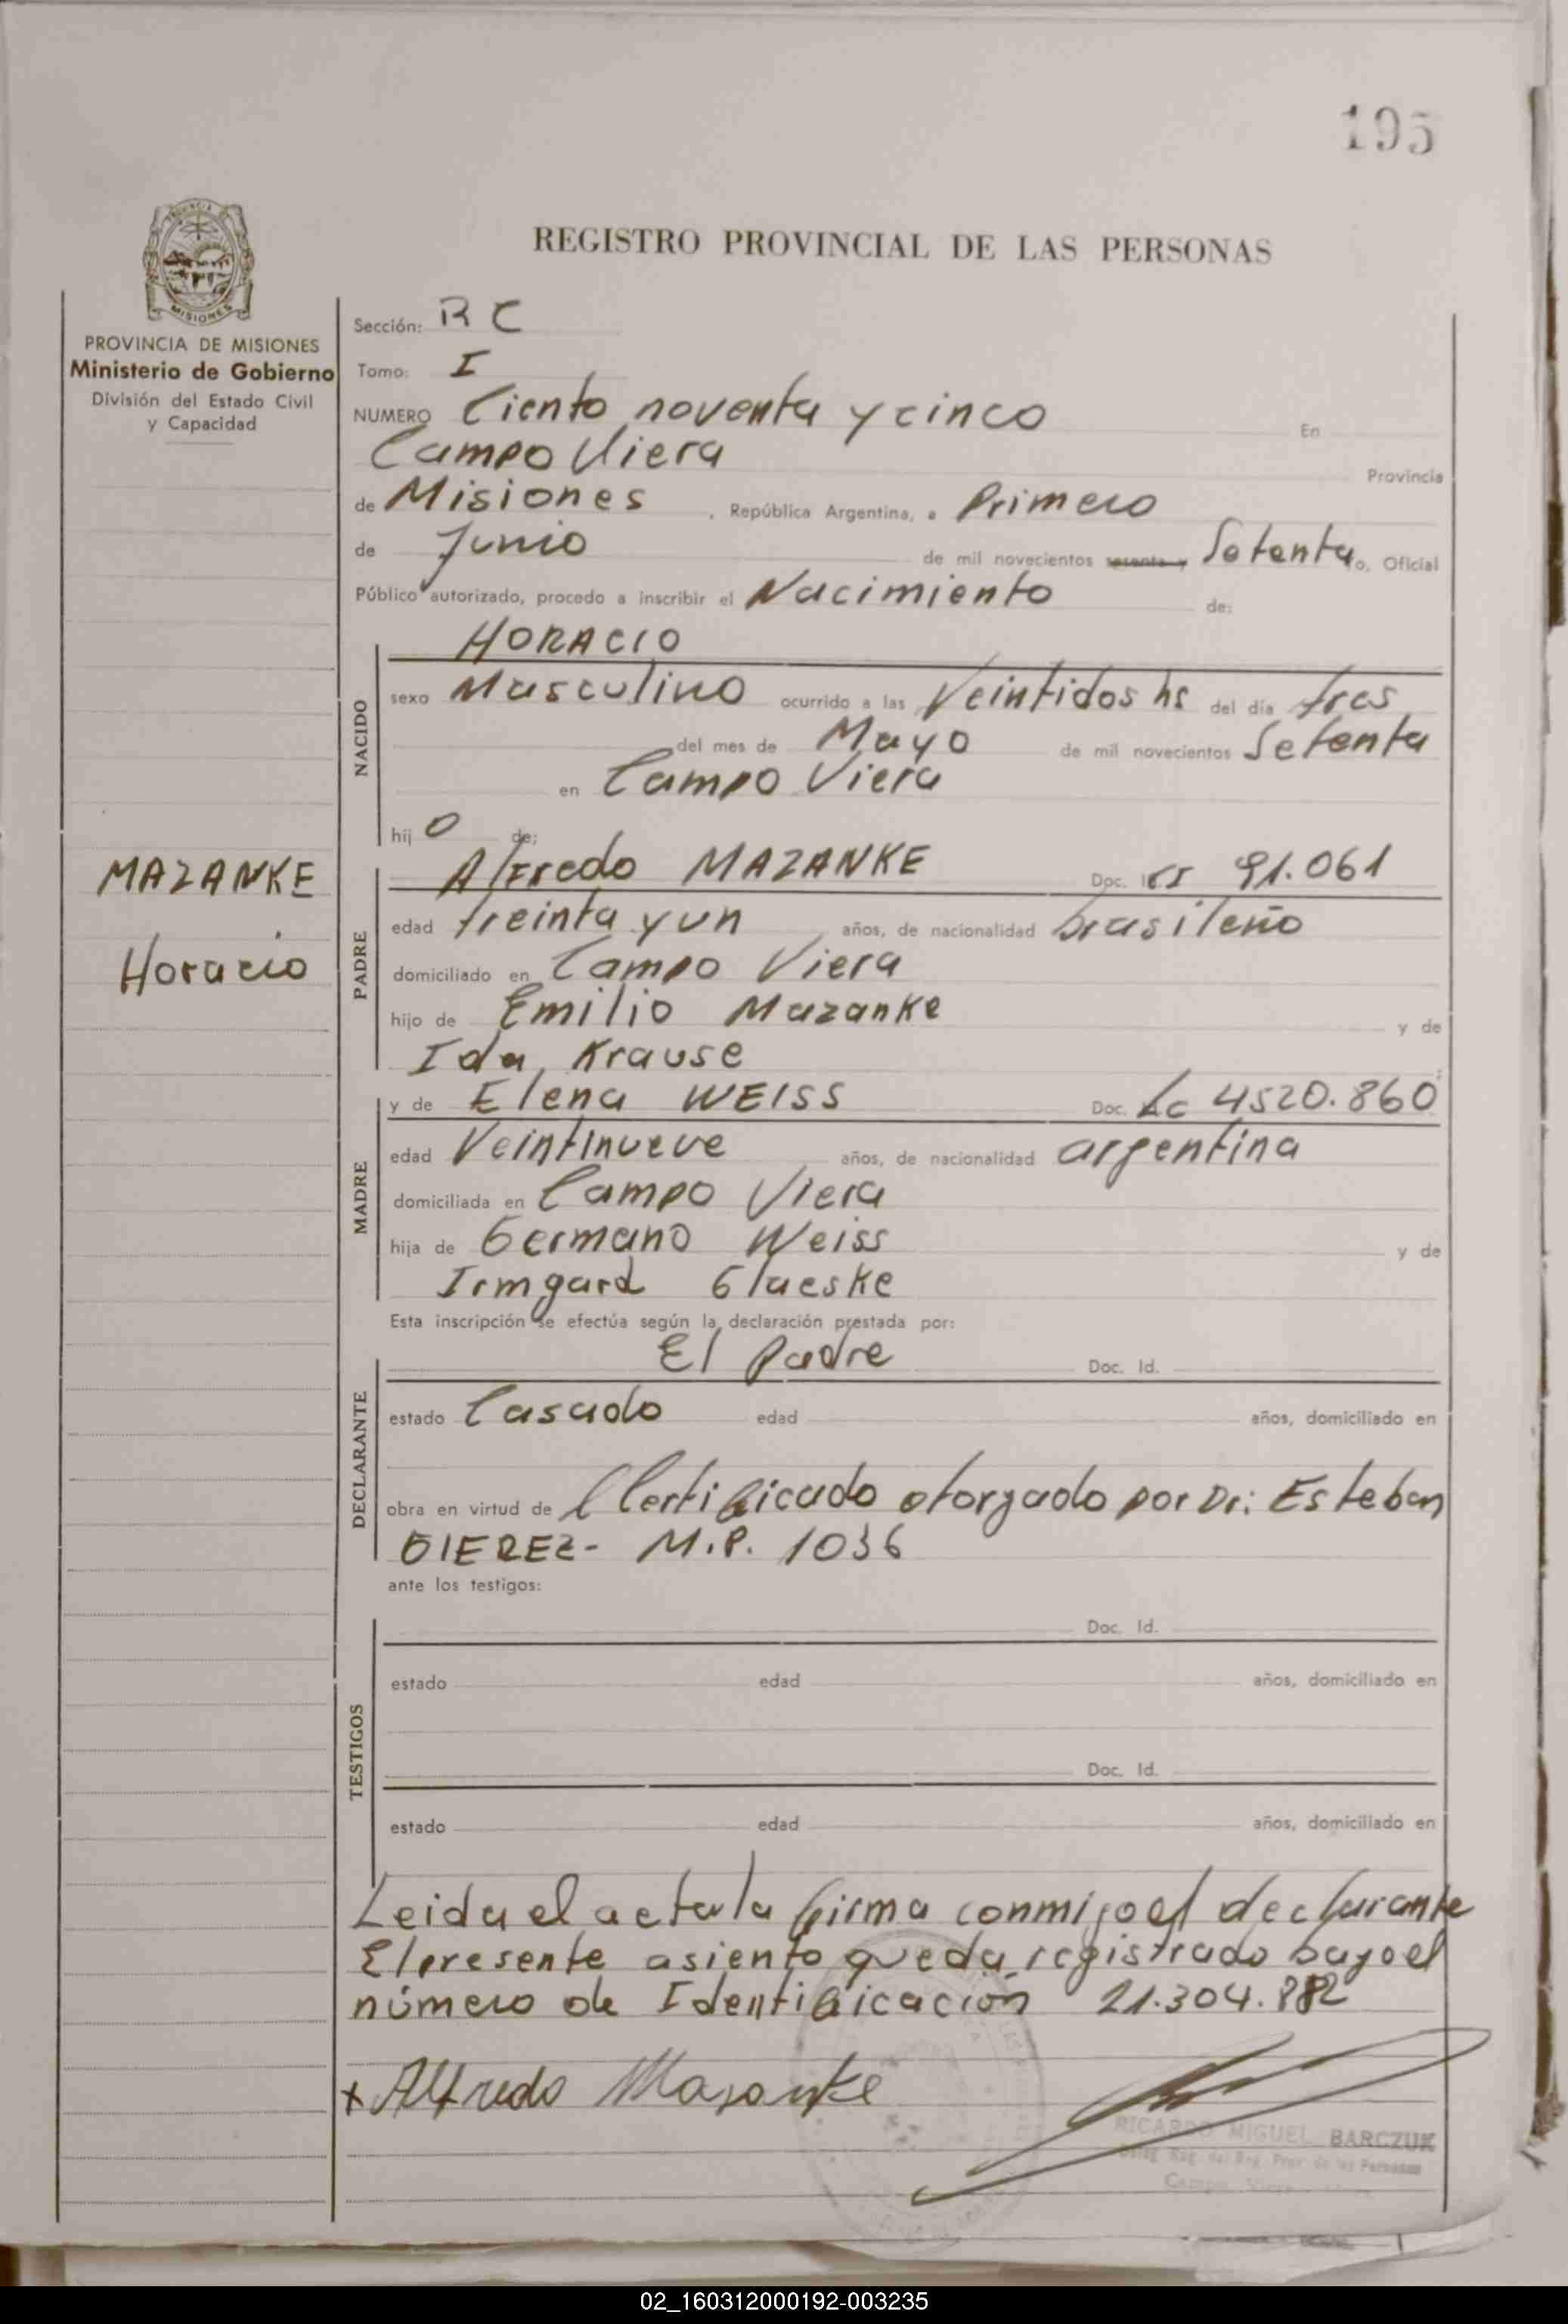 195
PROVINCIA DE MISIONES
Ministerio de Gobierno
División del Estado Civil
y Capacidad
REGISTRO PROVINCIAL DE LAS PERSONAS
Sección: R C
Tomo: I
NUMERO Ciento noventa y cinco En
Campo Viera Provincia
de Misiones, República Argentina, a Primero
de Junio de mil novecientos sesenta y Setenta o, Oficial
Público autorizado, procedo a inscribir el Nacimiento de:
HORACIO
NACIDO
sexo Masculino ocurrido a las Veintidos hs del día tres
del mes de Mayo de mil novecientos Setenta
en Campo Viera
hij o de:
MAZANKE
Horacio
PADRE
Alfredo MAZANKE Doc. CI 91.061
edad treinta y un años, de nacionalidad brasileño
domiciliado en Campo Viera
hijo de Emilio Mazanke y de
Ida Krause
MADRE
y de Elena WEISS Doc. Lc 4520.860
edad Veintinueve años, de nacionalidad argentina
domiciliada en Campo Viera
hija de Germano Weiss y de
Irmgard Glaeske
Esta inscripción se efectúa según la declaración prestada por:
DECLARANTE
El Padre Doc. Id.
estado Casado edad años, domiciliado en
obra en virtud de Certificado otorgado por Dr: Esteban
M.P. 1036
ante los testigos:
TESTIGOS
Doc. Id.
estado edad años, domiciliado en
Doc. Id.
estado edad años, domiciliado en
Leida el acta la firma conmigo el declarante
El presente asiento queda registrado bajo el
número de Identificación 21.304.882
x Alfredo Masanke
RICARDO MIGUEL BARCZUK
Deleg. Reg. del Reg. Prov. de las Personas
Campo Viera
02_160312000192-003235